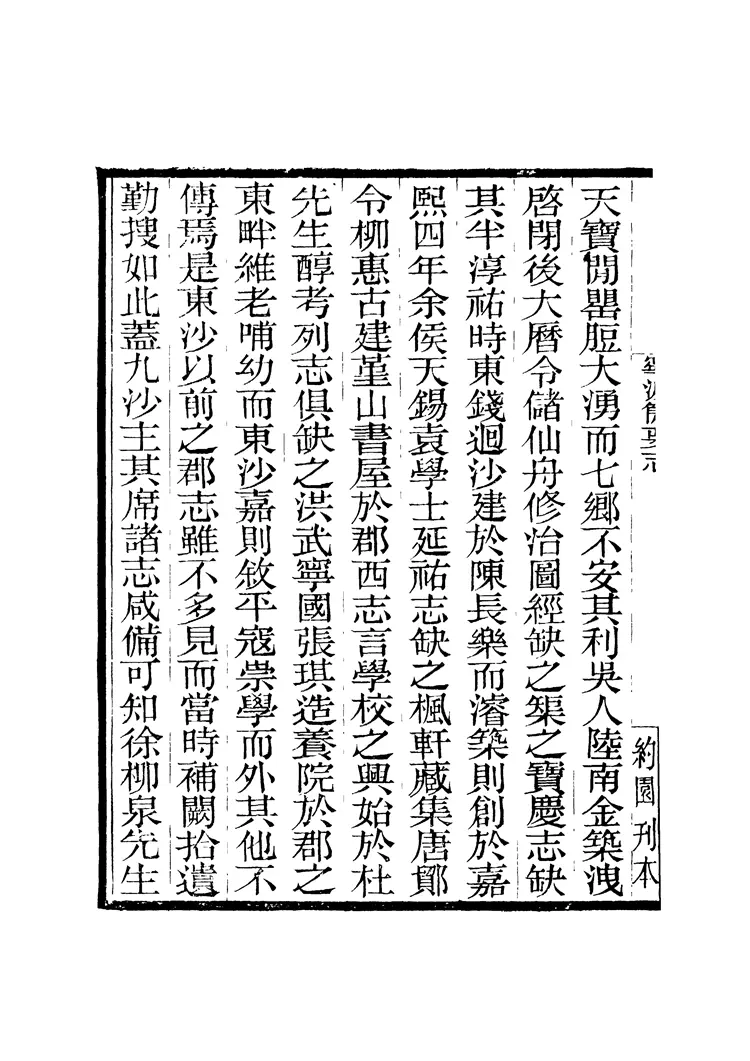 約園刊本
天寶閒罌脰大湧而七鄉不安其利吳人陸南金築洩
啓閉後大曆令儲仙舟修治圖經缺之榘之寶慶志缺
其半淳祐時東錢迴沙建於陳長樂而濬築則創於嘉
熙四年余侯天錫袁學士延祐志缺之楓軒藏集唐鄮
令柳惠古建堇山書屋於郡西志言學校之興始於杜
先生醇考列志俱缺之洪武寧國張琪造養院於郡之
東畔維老哺幼而東沙嘉則敘平寇崇學而外其他不
傳焉是東沙以前之郡志雖不多見而當時補闕拾遺
勤搜如此蓋九沙主其席諸志咸備可知徐柳泉先生